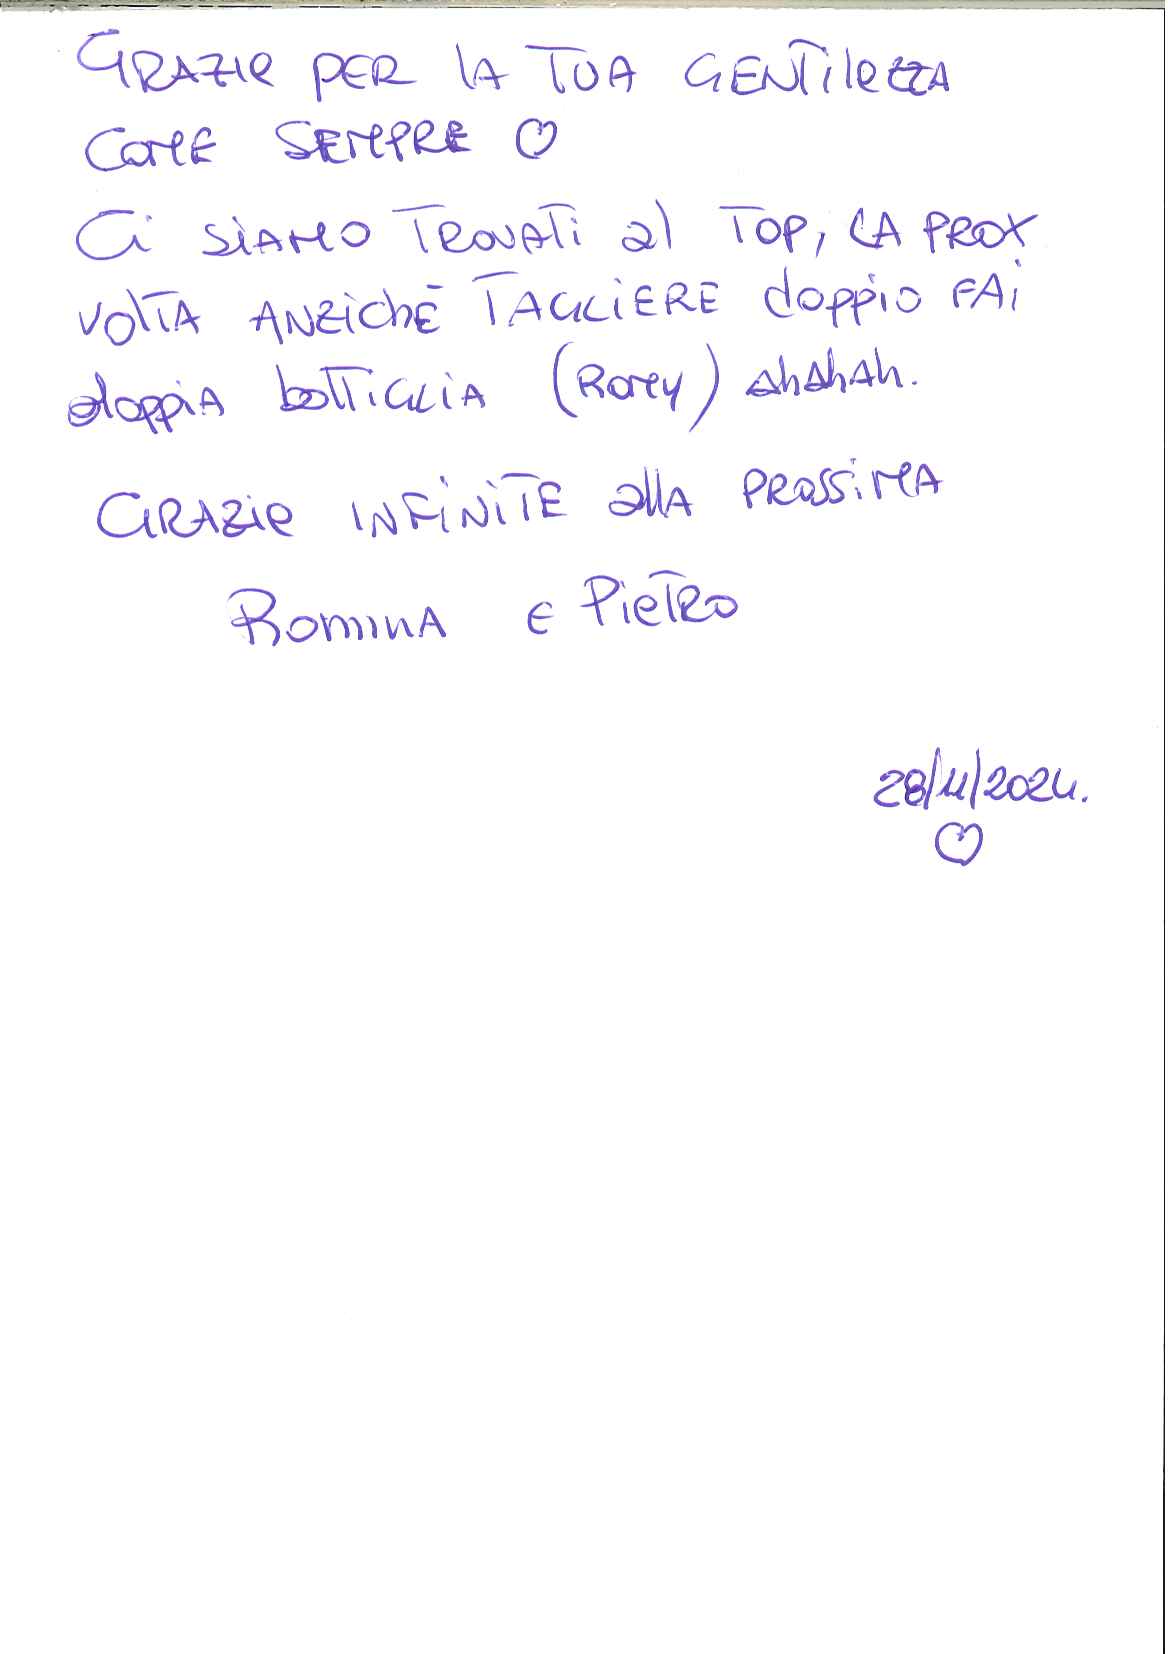 GRAZIE PER lA TUA GENTilezzA
COME SEMPRE ♡
Ci SiAMO TROVATi al TOP, LA PROX
VOlTA ANZIChÈ TAGLiERE doppio FAi
doppiA boTTiGLiA (Romy) ahahah.
GRAZie INFiNiTE allA PROSSiMA
RominA E PieTRO
28/11/2024.
♡